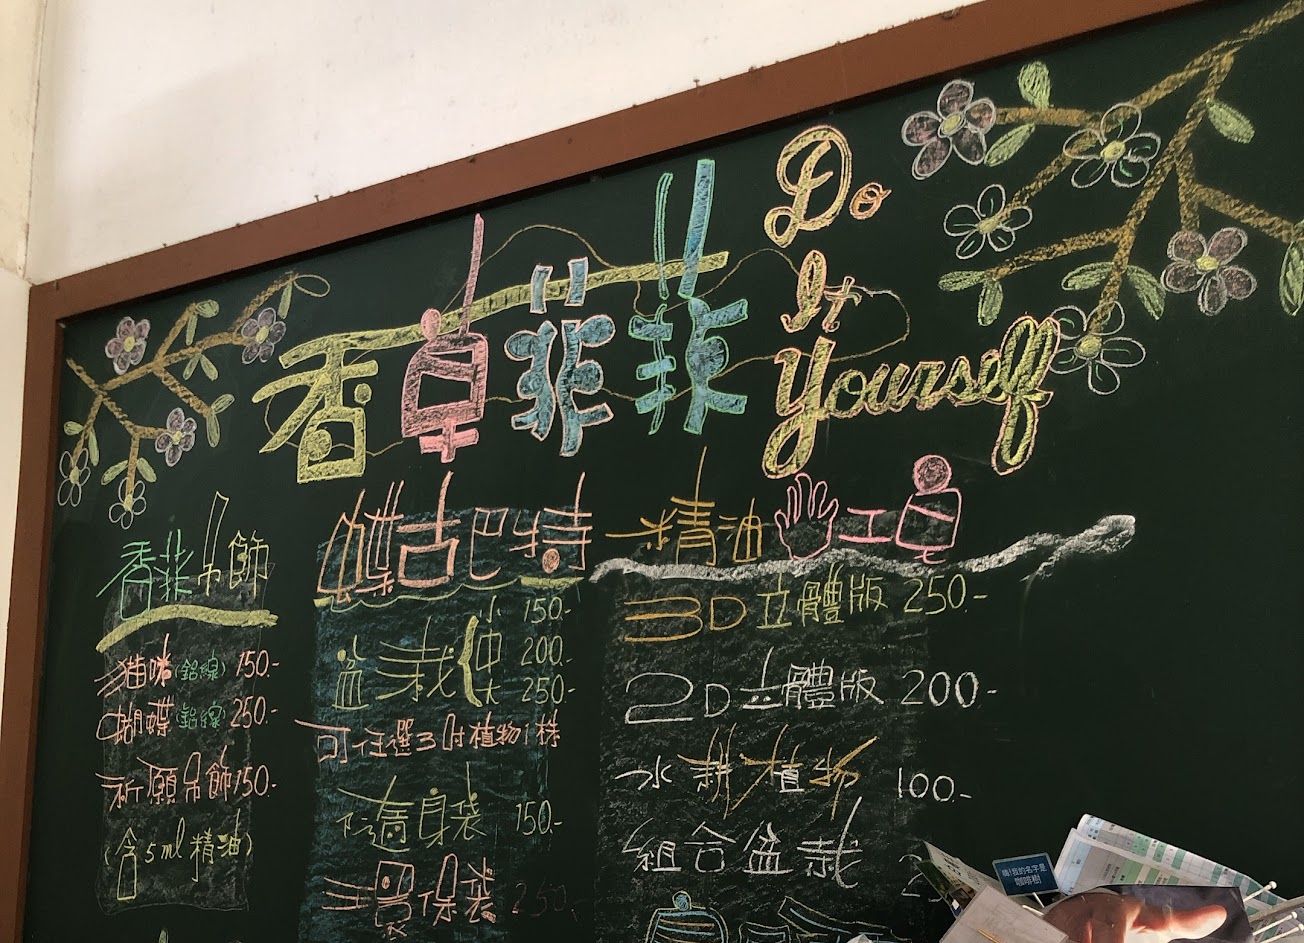 香草菲菲
Do
It
Yourself
香菲吊飾
貓咪(鋁線) 150.-
蝴蝶(鋁線) 250.-
祈願吊飾 150.-
(含5ml精油)
蝶古巴特
盆栽{小 150.-
中 200.-
大 250.-
可任選3吋植物1株
隨身袋 150.-
環保袋 250.-
精油手工皂
3D立體版 250.-
2D立體版 200.-
水耕植物 100.-
組合盆栽
嗨!我的名字是
咖啡樹